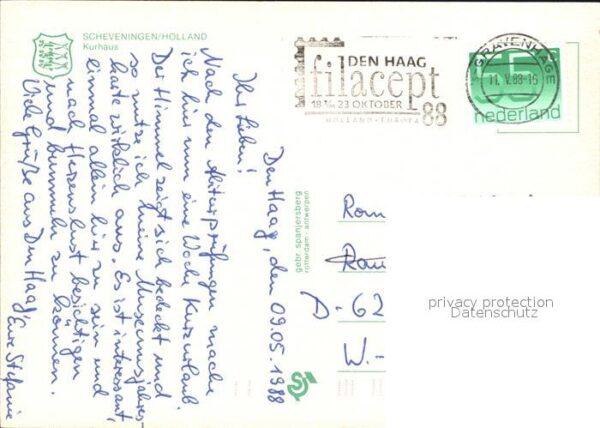 SCHEVENINGEN/HOLLAND
Kurhaus
Den Haag, den 09.05.1988
Ihr Lieben!
Nach den Abiturprüfungen mache
ich hier nun eine Woche Kurzurlaub.
Der Himmel zeigt sich bedeckt und
so nutze ich meine Museumsjahres-
karte wirklich aus. Es ist interessant,
einmal allein hier zu sein und
nach Herzenslust besichtigen
und bummeln zu können.
Viele Grüße aus Den Haag,
Eure Stefanie
gebr. spanjersberg
rotterdam - antwerpen
DEN HAAG
filacept
18 t/m 23 OKTOBER
HOLLAND - EUROPA
88
'S-GRAVENHAGE
11.V.88-16
55
nederland
Rom
Rau
D-62
W.-
privacy protection
Datenschutz